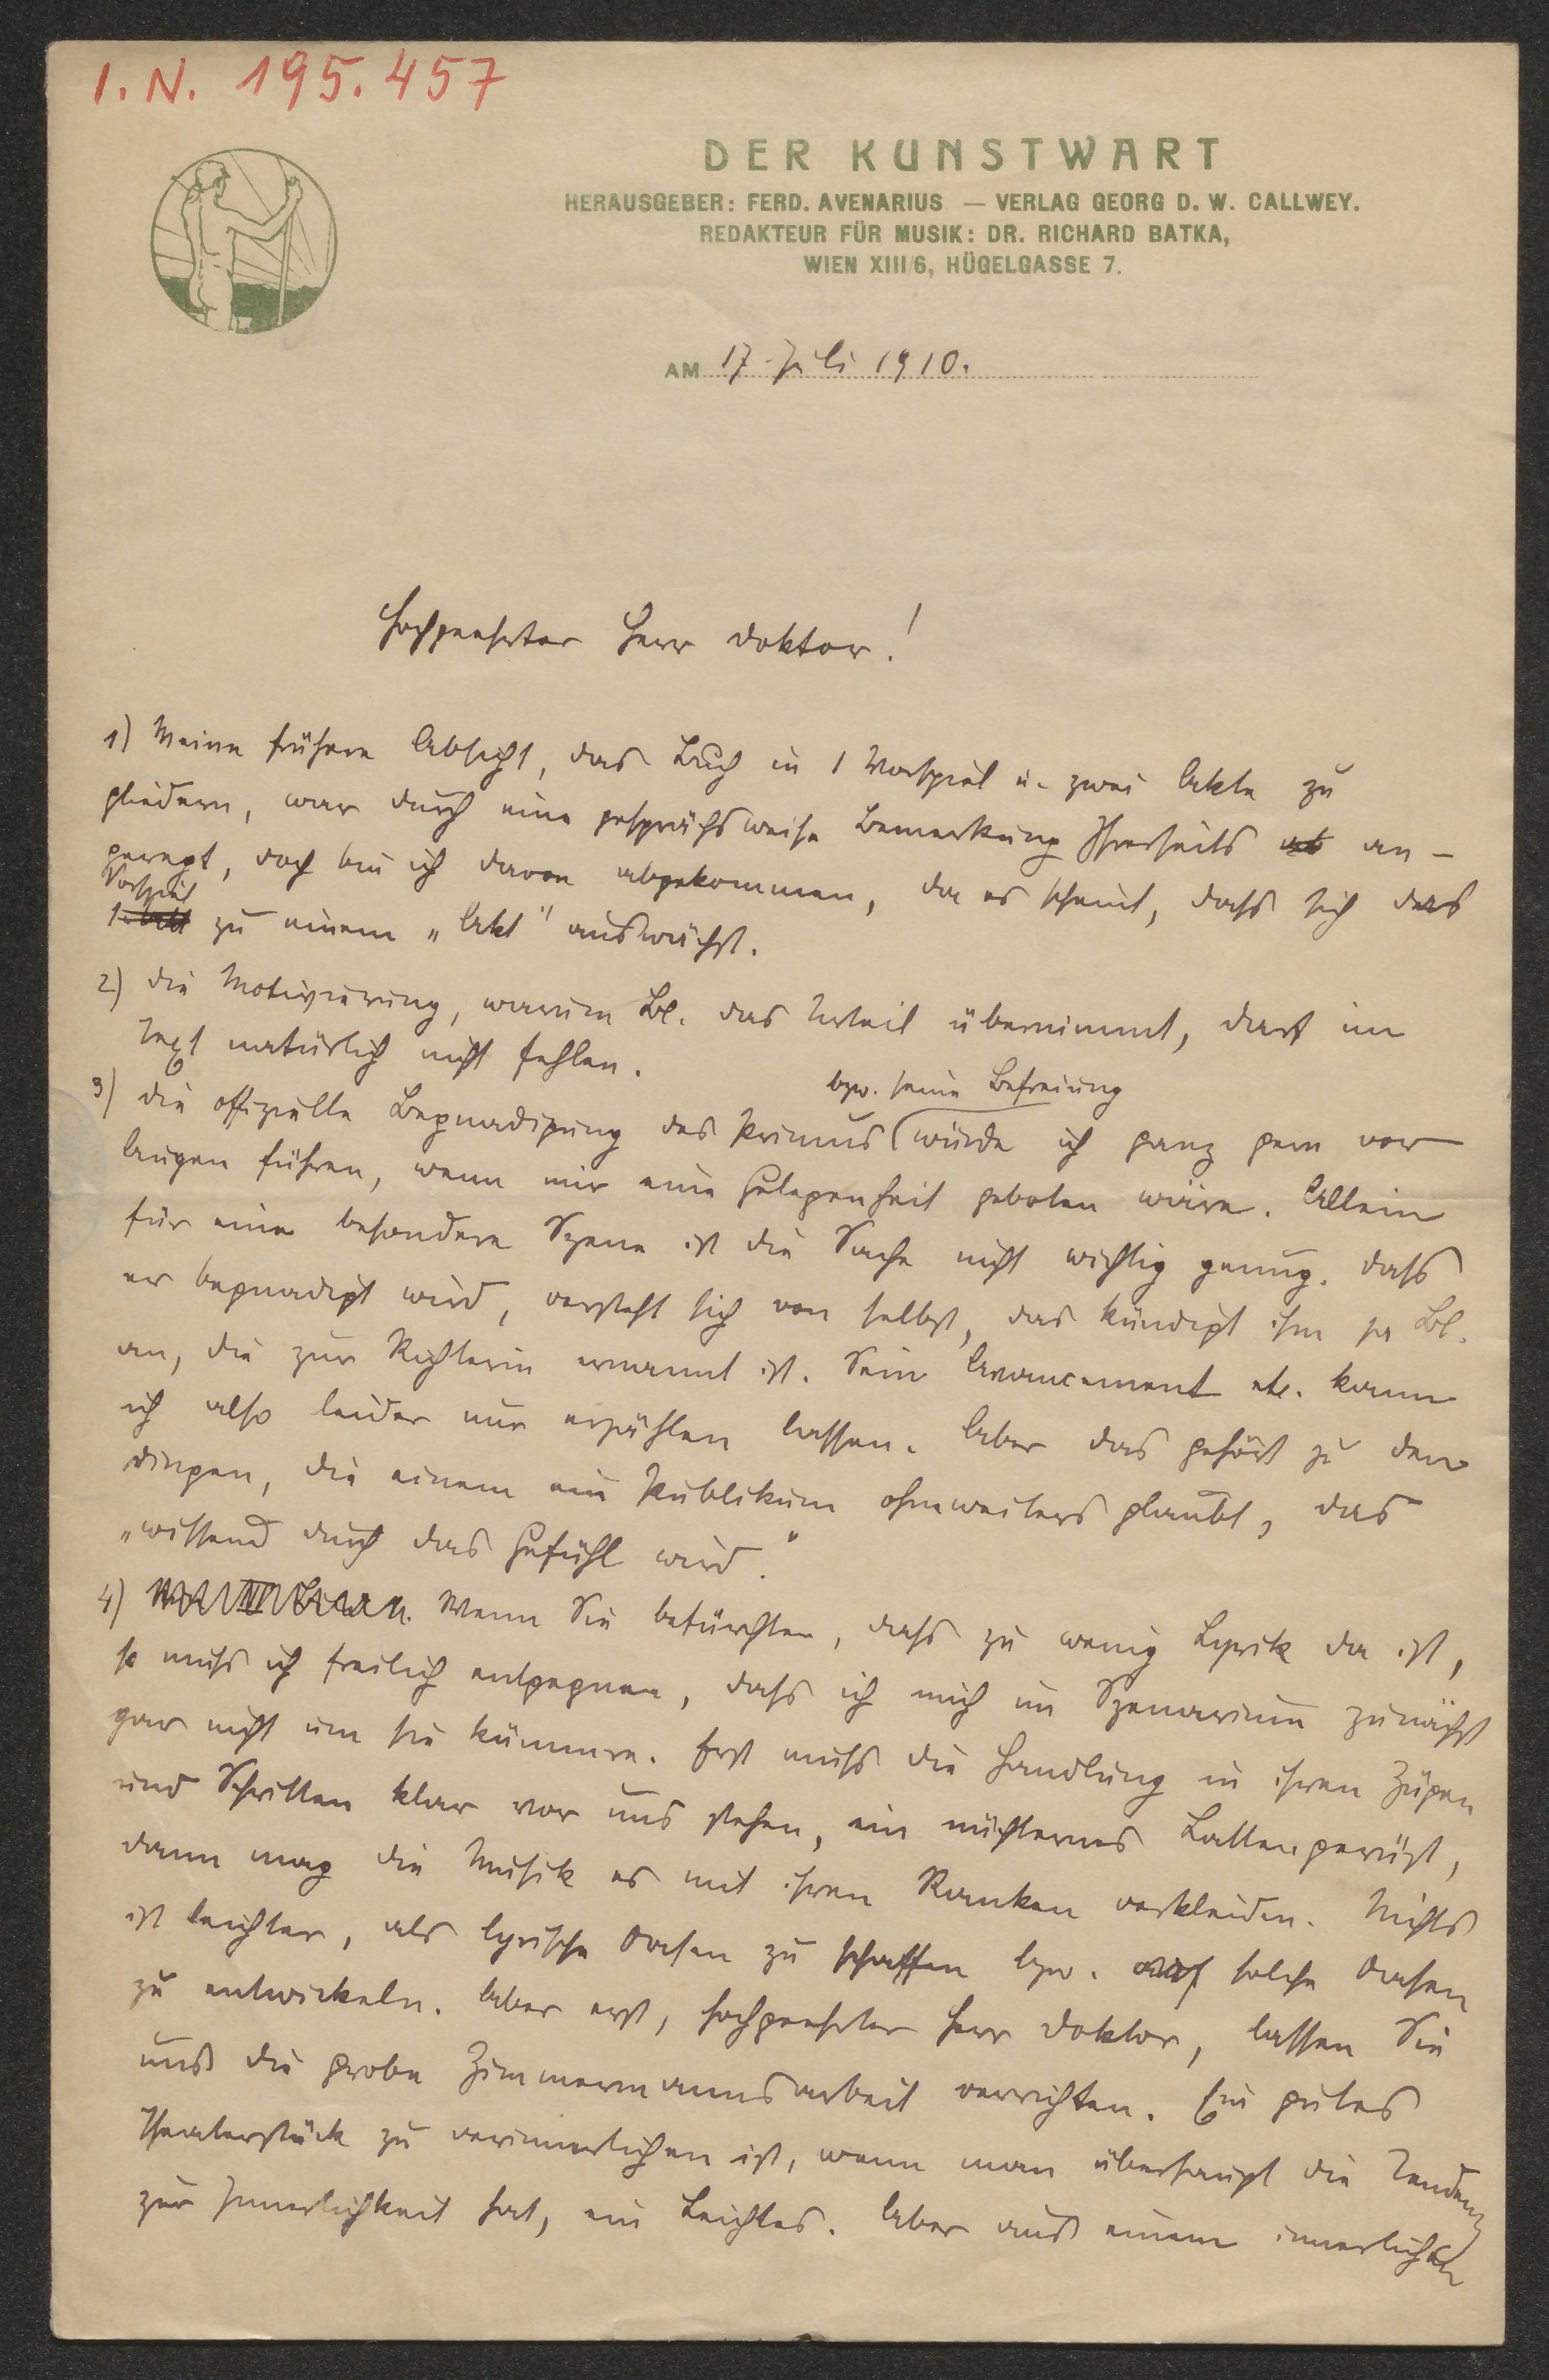 I. N. 195.457
DER KUNSTWART
HERAUSGEBER: FERD. AVENARIUS — VERLAG GEORG D. W. CALLWEY.
REDAKTEUR FÜR MUSIK: DR. RICHARD BATKA,
WIEN XIII/6, HÜGELGASSE 7.
AM 17. Juli 1910.
Hochgeehrter Herr Doktor!
1) Meine frühere Absicht, das Buch in 1 Vorspiel u. zwei Akte zu
gliedern, war durch eine gesprächsweise Bemerkung Ihrerseits an-
geregt, doch bin ich davon abgekommen, da es scheint, dass sich das
Vorspiel
zu einem „Akt" auswächst.
2) Die Motivierung, warum Bl. das Urteil übernimmt, darf im
Text natürlich nicht fehlen.
bzw. seine Befreiung
3) Die offizielle Begnadigung des Primus (würde ich ganz gern vor
Augen führen, wenn mir eine Gelegenheit geboten wäre. Allein
für eine besondere Szene ist die Sache nicht wichtig genug. Dass
er begnadigt wird, versteht sich von selbst, das kündigt ihm ja Bl.
an, die zur Richterin ernannt ist. Sein Avancement etc. kann
ich also leider nur erzählen lassen. Aber das gehört zu den
Dingen, die einem ein Publikum ohneweiters glaubt, das
„wissend durch das Gefühl wird."
4) Wenn Sie befürchten, dass zu wenig Lyrik da ist,
so muss ich freilich entgegnen, dass ich mich im Szenarium zunächst
gar nicht um sie kümmere. Erst muss die Handlung in ihren Zügen
und Schritten klar vor uns stehen, ein nüchternes Lattengerüst,
dann mag die Musik es mit ihren Ranken verkleiden. Nichts
ist leichter, als lyrische Oasen zu schaffen bzw. auf solche Oasen
zu entwickeln. Aber erst, hochgeehrter Herr Doktor, lassen Sie
uns die grobe Zimmermannsarbeit verrichten. Ein gutes
Theaterstück zu verinnerlichen ist, wenn man überhaupt die Tendenz
zur Innerlichkeit hat, ein Leichtes. Aber aus einem innerlichen